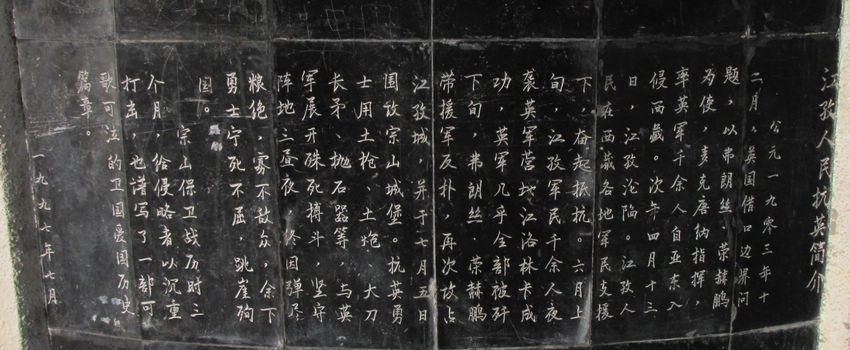 江孜人民抗英简介
公元一九零三年十
二月，英国借口边界问
题，以弗朗丝·荣赫鹏
为使，麦克唐纳指挥，
率英军千余人自亚东入
侵西藏。次年四月十三
日，江孜沦陷。江孜人
民在西藏各地军民支援
下，奋起抵抗。六月上
旬，江孜军民千余人夜
袭英军营地江洛林卡成
功，英军几乎全部被歼
下旬，弗朗丝·荣赫鹏
带援军反扑，再次攻占
江孜城，并于七月五日
围攻宗山城堡。抗英勇
士用土枪、土炮、大刀
长矛、抛石器等，与英
军展开殊死搏斗，坚守
阵地三昼夜，终因弹尽
粮绝，寡不敌众，余下
勇士宁死不屈，跳崖殉
国。
宗山保卫战历时三
个月，给侵略者以沉重
打击，也谱写了一部可
歌可泣的卫国爱国历史
篇章。
一九九七年七月